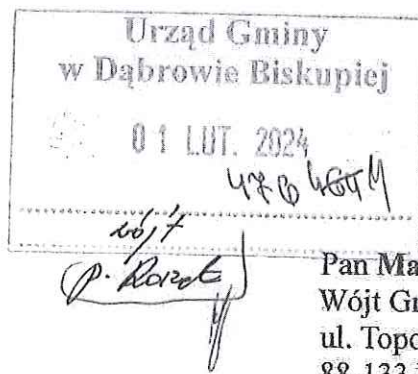 Urząd Gminy
w Dąbrowie Biskupiej
01 LUT. 2024
wójt
Pan Ma
Wójt Gr
ul. Topo
88-133